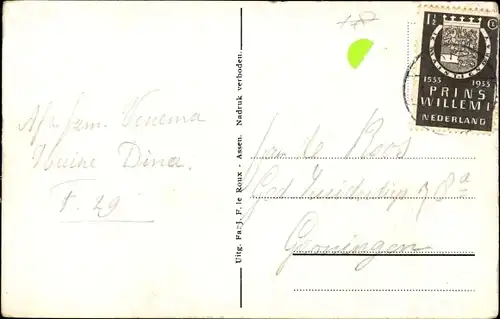 1½ ct
1533 1933
PRINS
WILLEM I
NEDERLAND
Afz. fam. Venema
Huize Dina.
F. 29
Uitg. Fa. J. F. le Roux - Assen. Nadruk verboden.
Fam de Roos
Ged Zuiderdiep 78a
Groningen